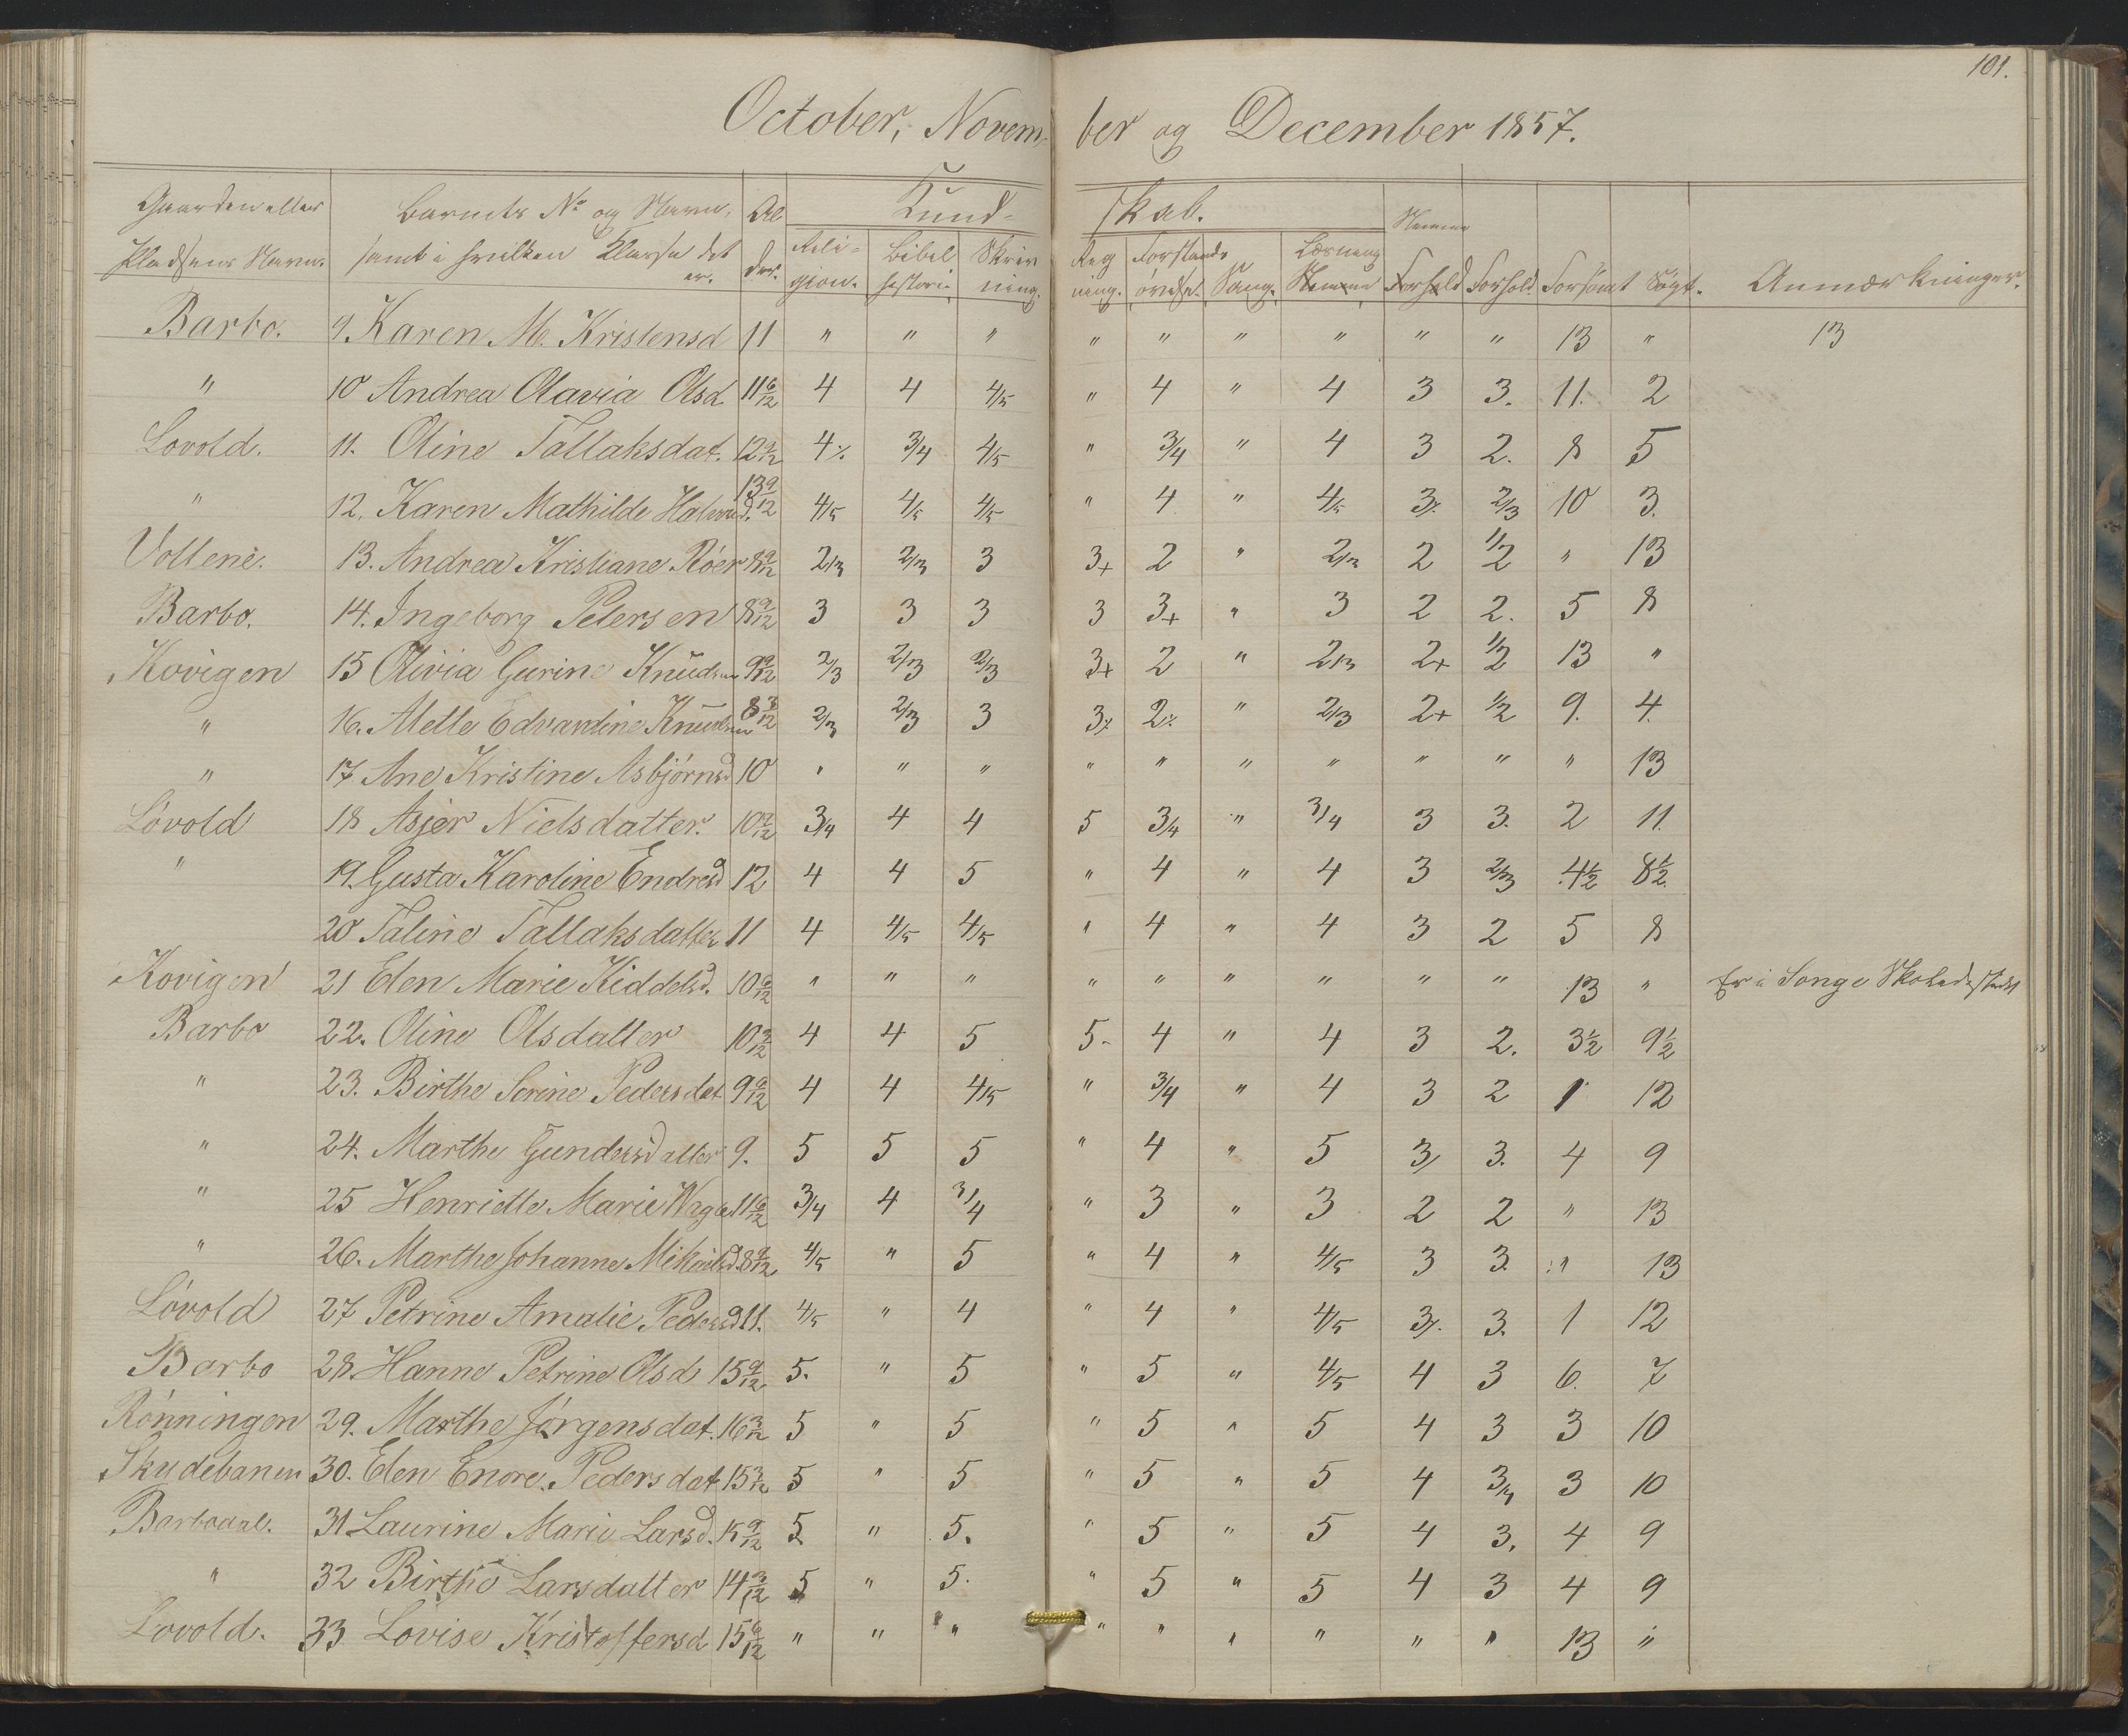 101.
October, Novem- ber og December 1857.
Gaarden eller Barnets No og Navn, Al Kund- skab. Nemme
Pladsens Navn. samt i hvilken Klasse det er. der. Reli- gion. Bibel historie Skriv ning. Reg ning. Forstands øvelse. Sang. Læsning Nemme Forhold Forhold Forsømt Søgt. Anmærkninger.
Barbo. 9. Karen M. Kristensd 11 " " " " " " " " " 13 " 13
" 10 Andrea Olavia Olsd. 11 6/12 4 4 4/5 " 4 " 4 3 3. 11. 2
Lovold. 11. Oline Tallaksdat. 12 9/12 4% 3/4 4/5 " 3/4 " 4 3 2. 8 5
" 12. Karen Mathilde Halvord. 13 9/12 4/5 4/5 4/5 " 4 " 4/5 3% 2/3 10 3.
Vollene. 13. Andrea Kristiane Röer 8 9/12 2/3 2/3 3 3+ 2 " 2/3 2 1/2 " 13
Barbo. 14. Ingeborg Petersen 8 9/12 3 3 3 3 3+ " 3 2 2. 5 8
Kovigen 15 Olivia Gurine Knudsen 9 9/12 2/3 2/3 2/3 3+ 2 " 2/3 2+ 1/2 13 "
" 16. Melle Edvardine Knudsen 8 3/12 2/3 2/3 3 3% 2% " 2/3 2+ 1/2 9. 4.
" 17. Ane Kristine Asbjørnsd 10 " " " " " " " " " " 13
Lövold 18 Asjer Nielsdatter. 10 9/12 3/4 4 4 5 3/4 " 3/4 3 3. 2 11.
" 19. Gusta Karoline Endresd 12 4 4 5 " 4 " 4 3 2/3 4 1/2 8 1/2
20 Taline Tallaksdatter 11 4 4/5 4/5 " 4 " 4 3 2 5 8
Kovigen 21 Elen Marie Kiddelsd. 10 9/12 " " " " " " " " " 13 " Er i Songe Skoledistrikt
Barbo 22. Oline Olsdatter 10 3/12 4 4 5 5- 4 " 4 3 2. 3 1/2 9 1/2
" 23. Birthe Serine Pedersdat 9 9/12 4 4 4/5 " 3/4 " 4 3 2 1 12
" 24. Marthe Gundersdatter 9. 5 5 5 " 4 " 5 3/ 3. 4 9
" 25 Henriette Marie Wage 11 6/12 3/4 4 3/4 " 3 " 3 2 2 " 13
" 26. Marthe Johanne Mikaelsd. 8 9/12 4/5 " 5 " 4 " 4/5 3 3. " 13
Lövold 27 Petrine Amalie Pedersd 11. 4/5 " 4 " 4 " 4/5 3% 3. 1 12
Barbo 28. Hanne Petrine Olsd 15 9/12 5. " 5 " 5 " 4/5 4 3 6. 7
Rönningen 29. Marthe Jörgensdat. 16 3/12 5 " 5 " 5 " 5 4 3 3 10
Skudebanen 30. Elen Enore. Pedersdat 15 3/12 5 " 5 " 5 " 5 4 3/4 3 10
Barbodal. 31 Laurine Marie Larsd. 15 9/12 5. " 5. " 5 " 5 4 3. 4 9
" 32 Birthe Larsdatter 14 3/12 5 " 5. " 5 " 5 4 3 4 9
Lovold. 33 Lovise Kristoffersd 15 6/12 " " " " " " " " " 13 "